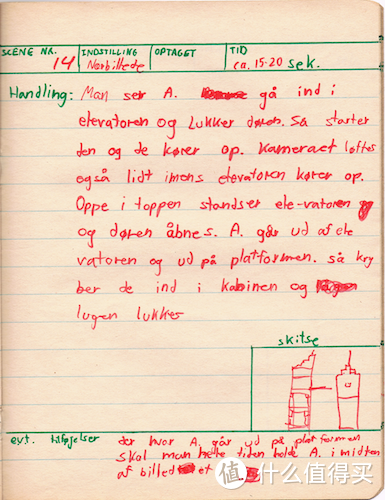 SCENE NR. 14 INDSTILLING Nærbillede OPTAGET TID ca. 15-20 sek.
Handling: Man ser A. gå ind i
elevatoren og lukker døren. Så starter
den og de kører op. Kameraet løftes
også lidt imens elevatoren kører op.
Oppe i toppen standser ele-vatoren
og døren åbnes. A. går ud af ele
vatoren og ud på platformen. så kry
ber de ind i kabinen og
lugen lukker
skitse
evt. tilføjelser der hvor A. går ud på platformen
skal man hele tiden holde A. i midten
af billedet
值 什么值得买